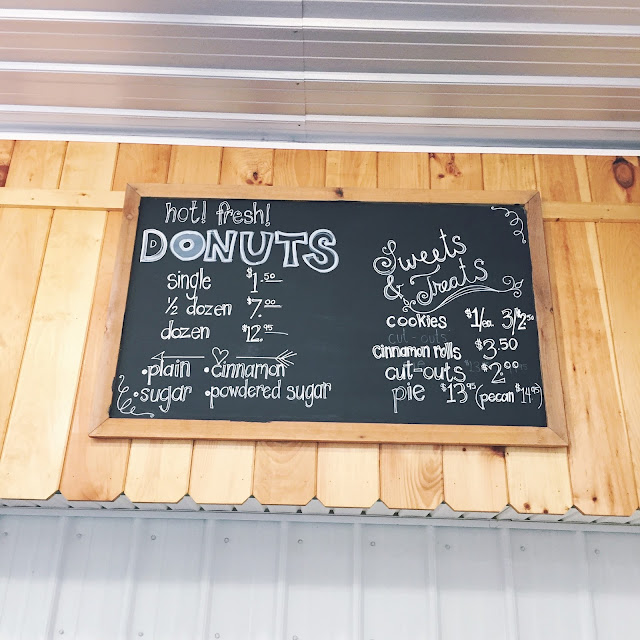 hot! fresh!
DONUTS
single $1.50
½ dozen $7.00
dozen $12.95
•plain •cinnamon
•sugar •powdered sugar
Sweets
& Treats
cookies $1/ea. 3/2.50
cut-outs
cinnamon rolls $3.50
cut-outs $2.00
pie $13.95 (pecan $14.95)